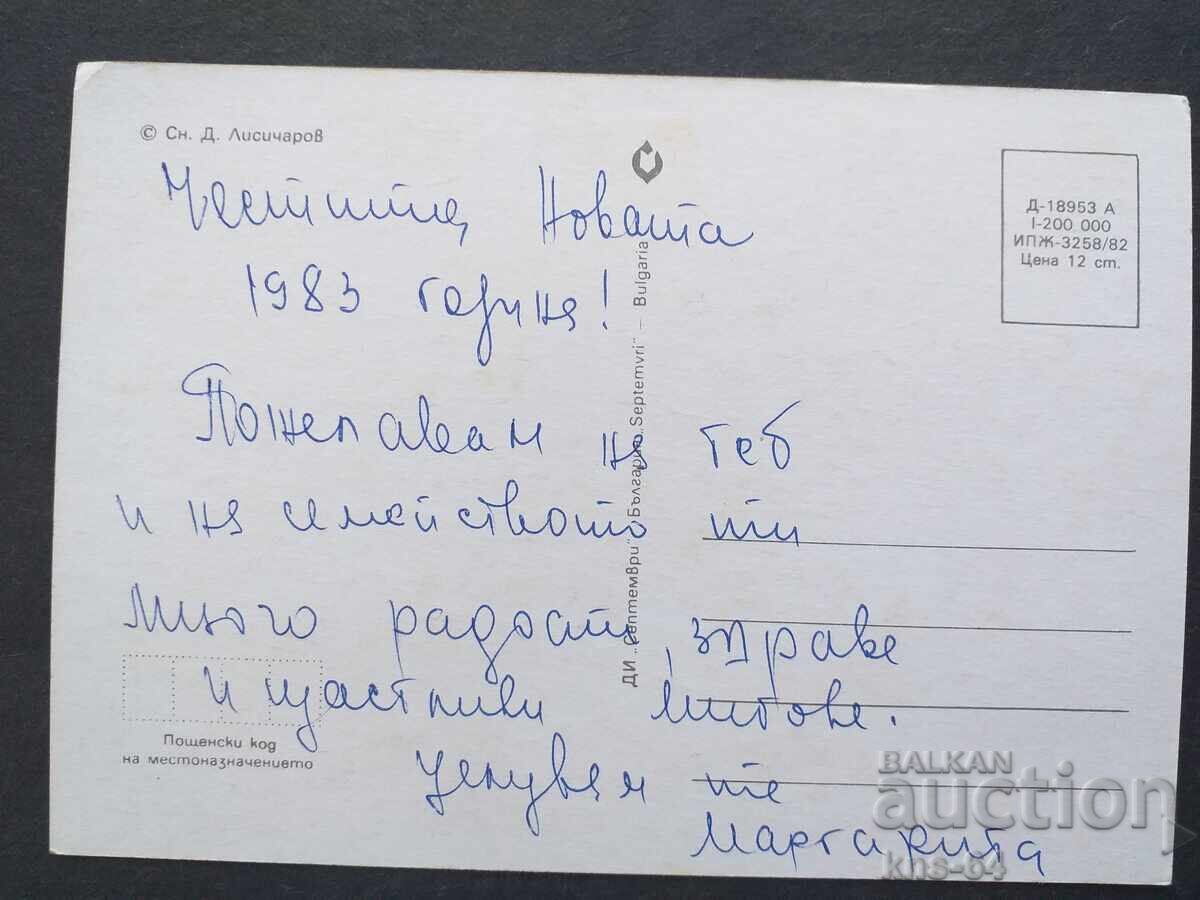 © Сн. Д. Лисичаров
Честита Новата
1983 година!
Пожелавам на теб
и на семейството ти
много радост, здраве
и щастливи мигове.
Целувам те
Маргарита
Пощенски код
на местоназначението
ДИ „Септември" България „Septemvri" — Bulgaria
Д-18953 А
I-200 000
ИПЖ-3258/82
Цена 12 ст.
BALKAN
auction
kns-64